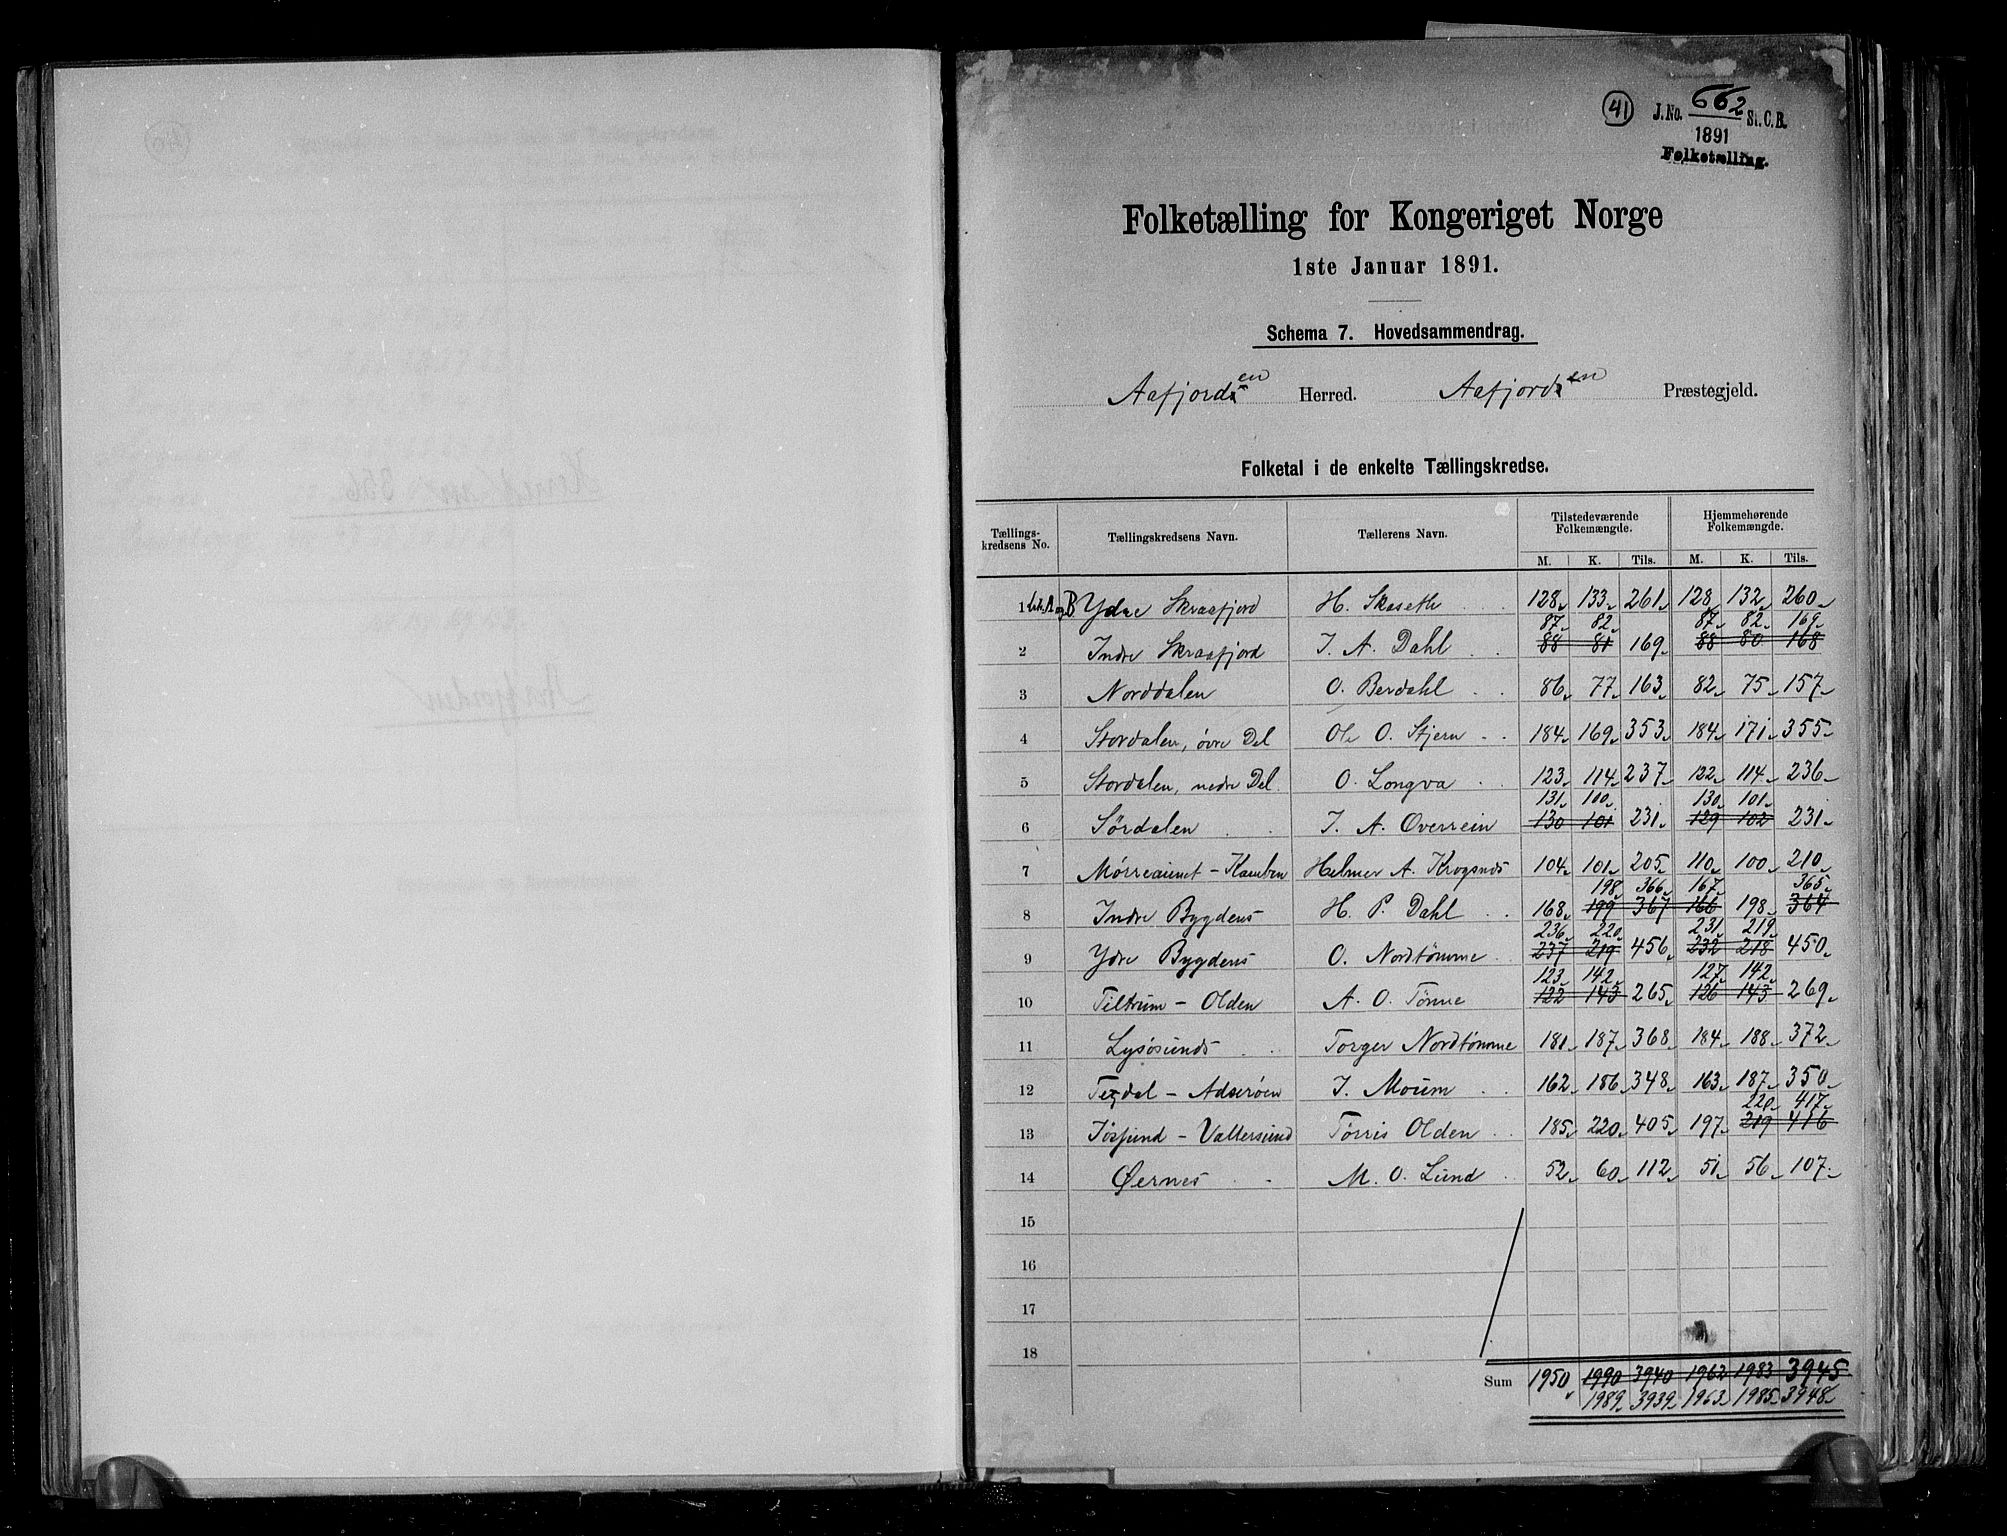 41
J. No. 662 St. C. B.
1891
Folketælling.
Folketælling for Kongeriget Norge
1ste Januar 1891.
Schema 7. Hovedsammendrag.
Aafjorden Herred. Aafjorden Præstegjeld.
Folketal i de enkelte Tællingskredse.
Tællings-kredsens No. Tællingskredsens Navn. Tællerens Navn. Tilstedeværende Folkemængde. Hjemmehørende Folkemængde.
M. K. Tils. M. K. Tils.
1 Litr. A og B Ydre Skraafjord H. Skaseth 128 133 261 128 132 260
87 82 87 82 169
2 Indre Skraafjord J. A. Dahl 88 81 169 88 80 168
3 Norddalen O. Berdahl 86 77 163 82 75 157
4 Stordalen, øvre Del Ole O. Stjern 184 169 353 184 171 355
5 Stordalen, nedre Del. O. Longva 123 114 237 122 114 236
131 100 130 101
6 Sørdalen J. A. Overrein 130 101 231 129 102 231
7 Mørreaunet - Kamben Helmer A. Krogsnes 104 101 205 110 100 210
198 366 167 365
8 Indre Bygdens H. P. Dahl 168 199 367 166 198 364
236 220 231 219
9 Ydre Bygdens O. Nordtømme 237 219 456 232 218 450
123 142 127 142
10 Teltrum - Olden A. O. Tønne 122 143 265 126 143 269
11 Lysøsunds Torger Nordtømme 181 187 368 184 188 372
12 Teqdal - Adserøen J. Moum 162 186 348 163 187 350
220 417
13 Jøssund - Valtersund Tørris Olden 185 220 405 197 219 416
14 Øernes M. O. Lund 52 60 112 51 56 107
15
16
17
18
Sum 1950 1990 3940 1962 1983 3945
1989 3939 1963 1985 3948